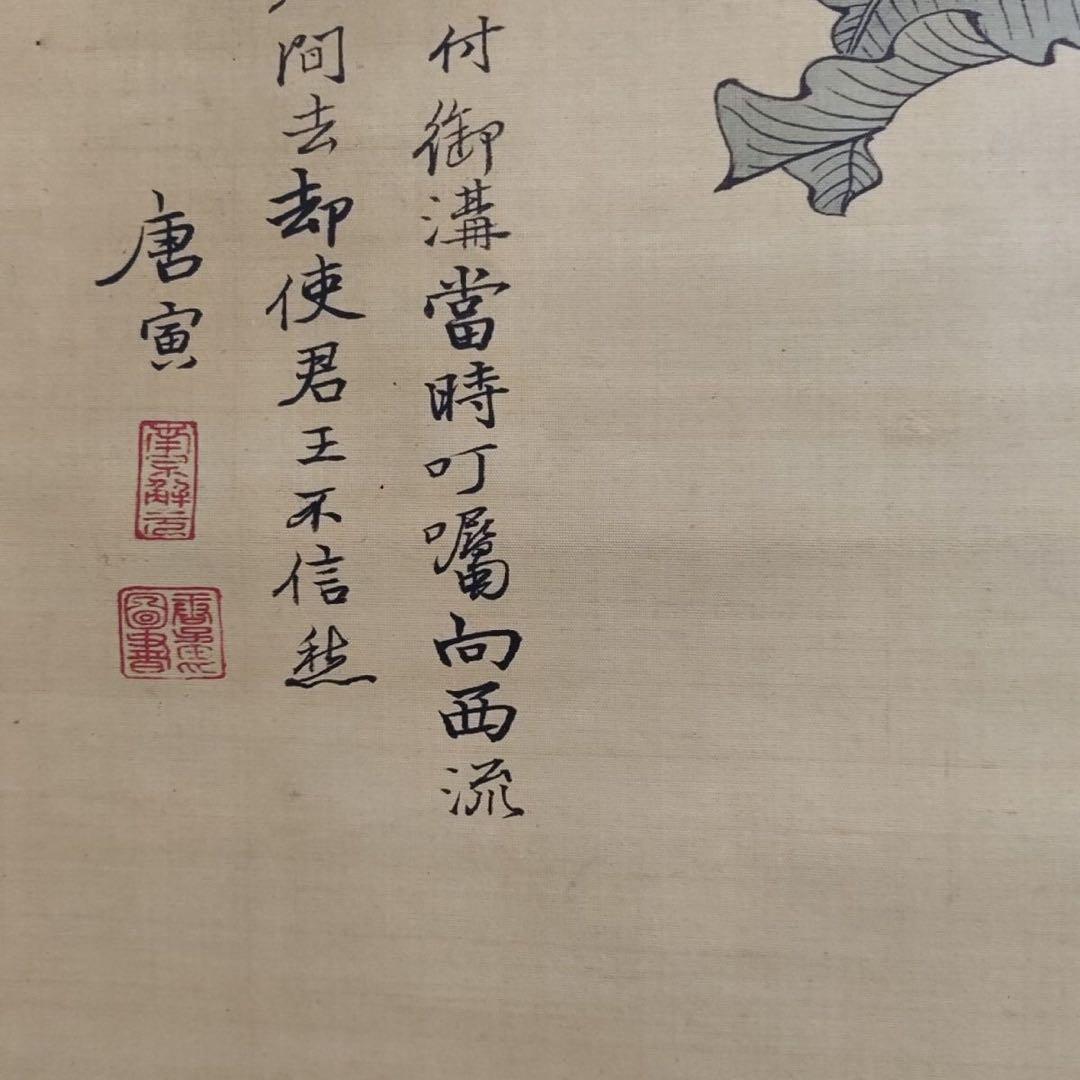 付御溝當時叮囑向西流
間去却使君王不信愁
唐寅
南京解元
唐居士
圖書